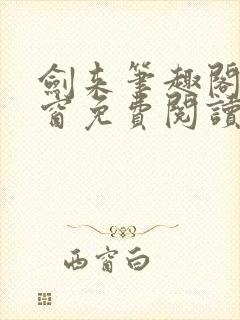 劍来筆趣閣
窗免費閱讀
西窗白